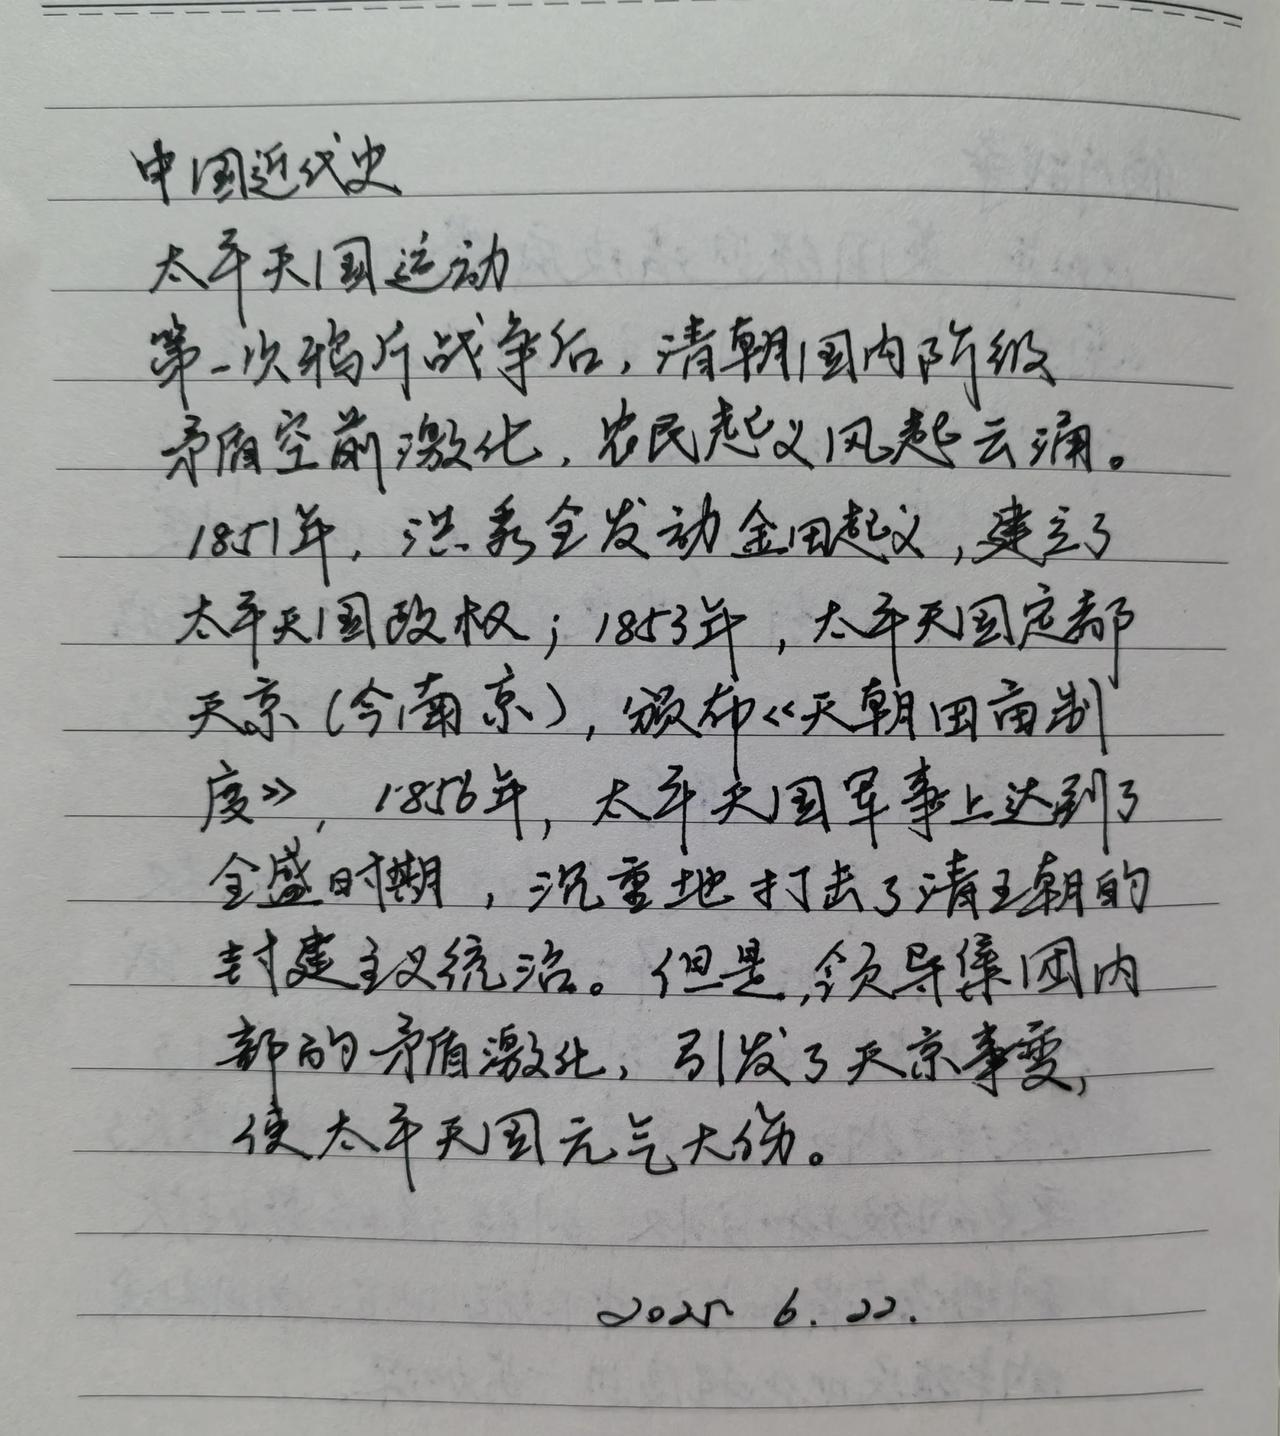 中国近代史
太平天国运动
第一次鸦片战争后，清朝国内阶级
矛盾空前激化，农民起义风起云涌。
1851年，洪秀全发动金田起义，建立了
太平天国政权；1853年，太平天国定都
天京（今南京），颁布《天朝田亩制
度》，1856年，太平天国军事上达到了
全盛时期，沉重地打击了清王朝的
封建主义统治。但是，领导集团内
部的矛盾激化，引发了天京事变，
使太平天国元气大伤。
2025 6.22.